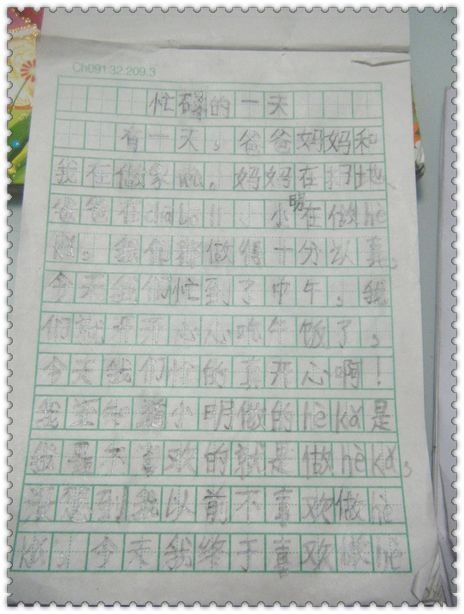 Ch091.32.209.3
忙碌的一天
有一天，爸爸妈妈和
我在做家wu。妈妈在扫地，
爸爸在 小明在做hè
kǎ。我 做得十分认真。
今天我们忙到了中午。我
们就开开心心吃午饭了，
今天我们忙的真开心啊！
我 小明做的hè kǎ是
我 不喜欢的就是做hè kǎ，
没想到我以前不喜欢做hè
kǎ，今天我终于喜欢做hè